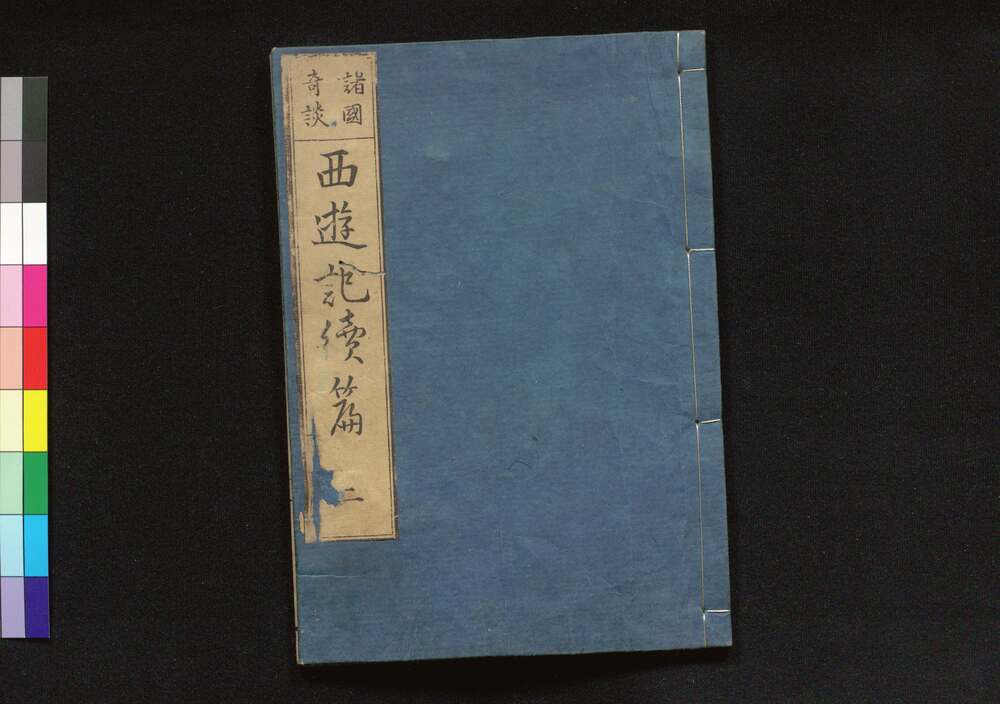 諸國
奇談
西遊記續篇
二